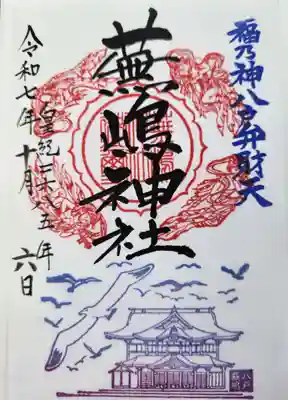 稲乃神八戸弁財天
蕪嶋神社
令和七年十月六日
皇紀二六八五年
八戸
蕪嶋